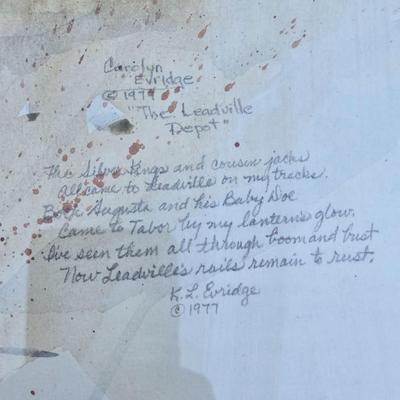 Carolyn
Evridge
© 1977
"The Leadville
Depot"
The Silver Kings and cousin jacks
All came to Leadville on my tracks.
Both Augusta and his Baby Doe
Came to Tabor by my lantern's glow.
I've seen them all through boom and bust
Now Leadville's rails remain to rust.
K. L. Evridge
© 1977